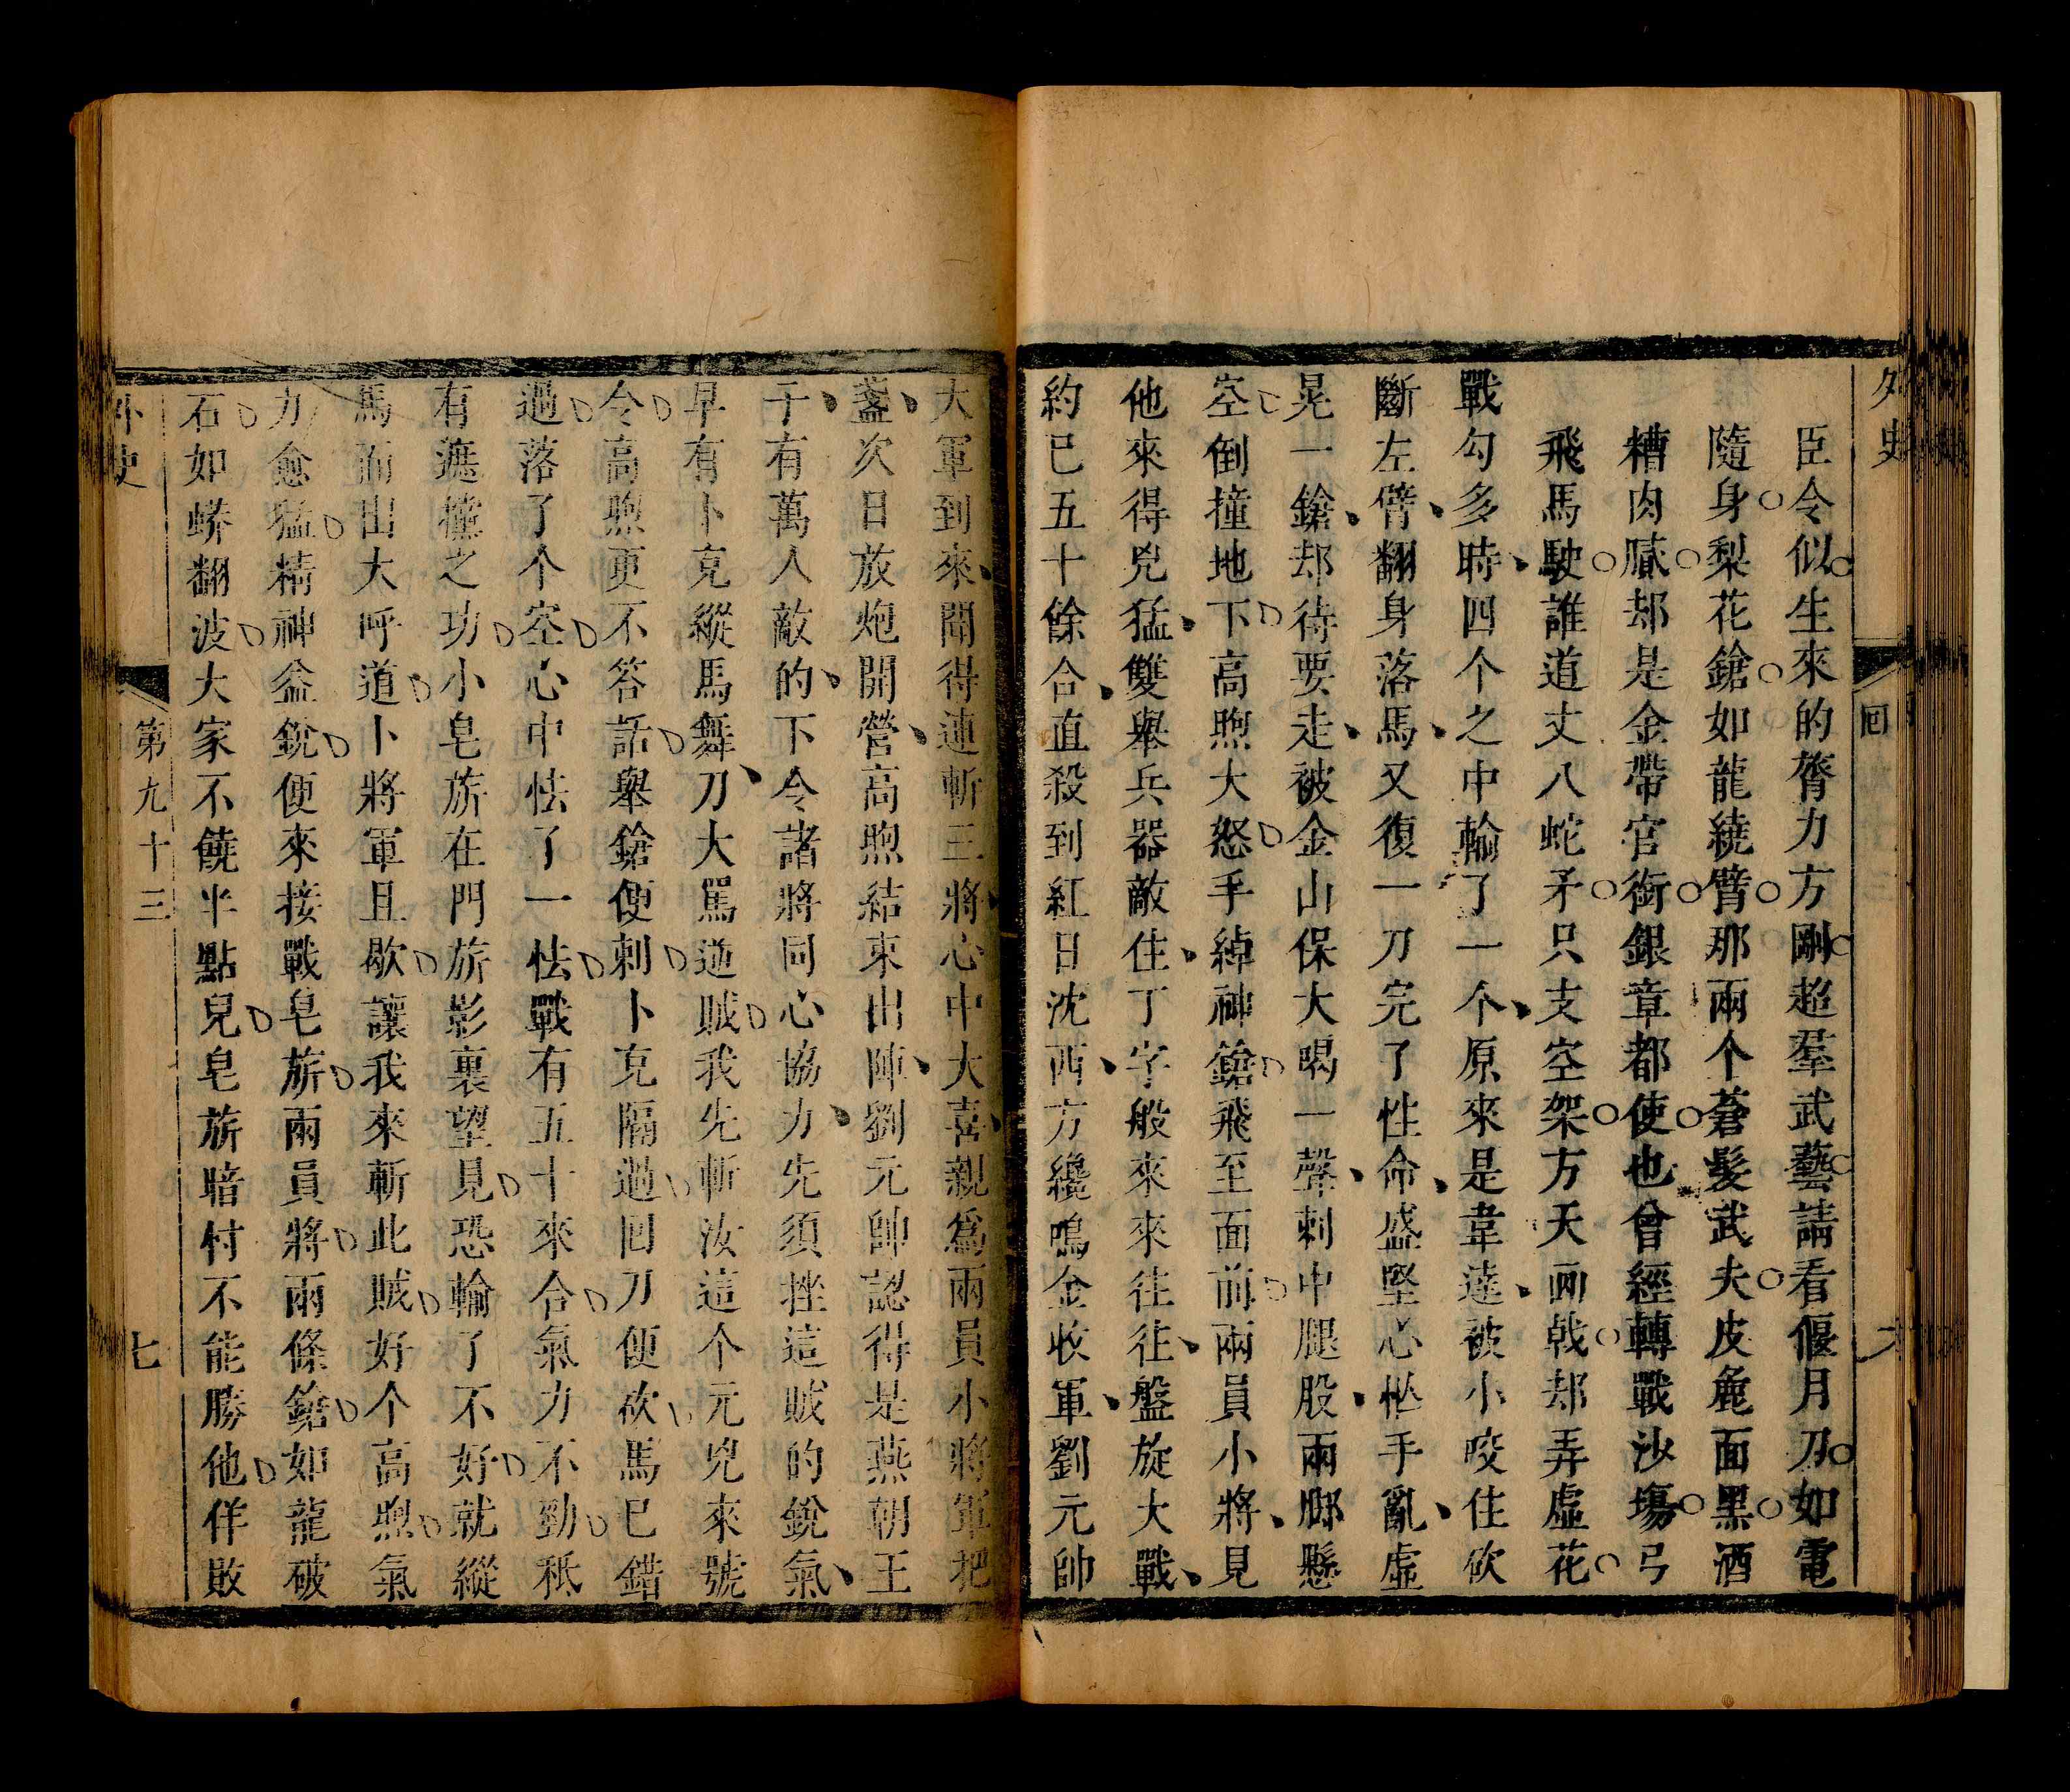 外史
回
臣令似生來的膂力方剛超羣武藝請看偃月刀如電
隨身梨花鎗如龍繞臂那兩个蒼髮武夫皮麁面黑酒
糟肉贓却是金帶官銜銀章都使也曾經轉戰沙塲弓
飛馬駛誰道丈八蛇矛只支空架方天画戟却弄虛花
戰勾多時四个之中輸了一个原來是韋達被小咬住砍
斷左臂翻身落馬又復一刀完了性命盛堅心怯手亂虛
晃一鎗却待要走被金山保大喝一聲刺中腿股兩脚懸
空倒撞地下高煦大怒手綽神鎗飛至面前兩員小將見
他來得兇猛雙舉兵器敵住丁字般來來往往盤旋大戰
約已五十餘合直殺到紅日沈西方纔鳴金收軍劉元帥
大軍到來聞得連斬三將心中大喜親爲兩員小將軍把
盞次日放炮開營高煦結束出陣劉元帥認得是燕朝王
子有萬人敵的下令諸將同心協力先須挫這賊的銳氣
早有卜克縱馬舞刀大罵逆賊我先斬汝這个元兇來號
令高煦更不答話舉鎗便刺卜克隔過回刀便砍馬已錯
過落了个空心中怯了一怯戰有五十來合氣力不勁秪
有遮攔之功小皂旂在門旂影裏望見恐輸了不好就縱
馬而出大呼道卜將軍且歇讓我來斬此賊好个高煦氣
力愈猛精神益銳便來接戰皂旂兩員將兩條鎗如龍破
石如蟒翻波大家不饒半點兒皂旂暗忖不能勝他佯敗
外史
第九十三
七